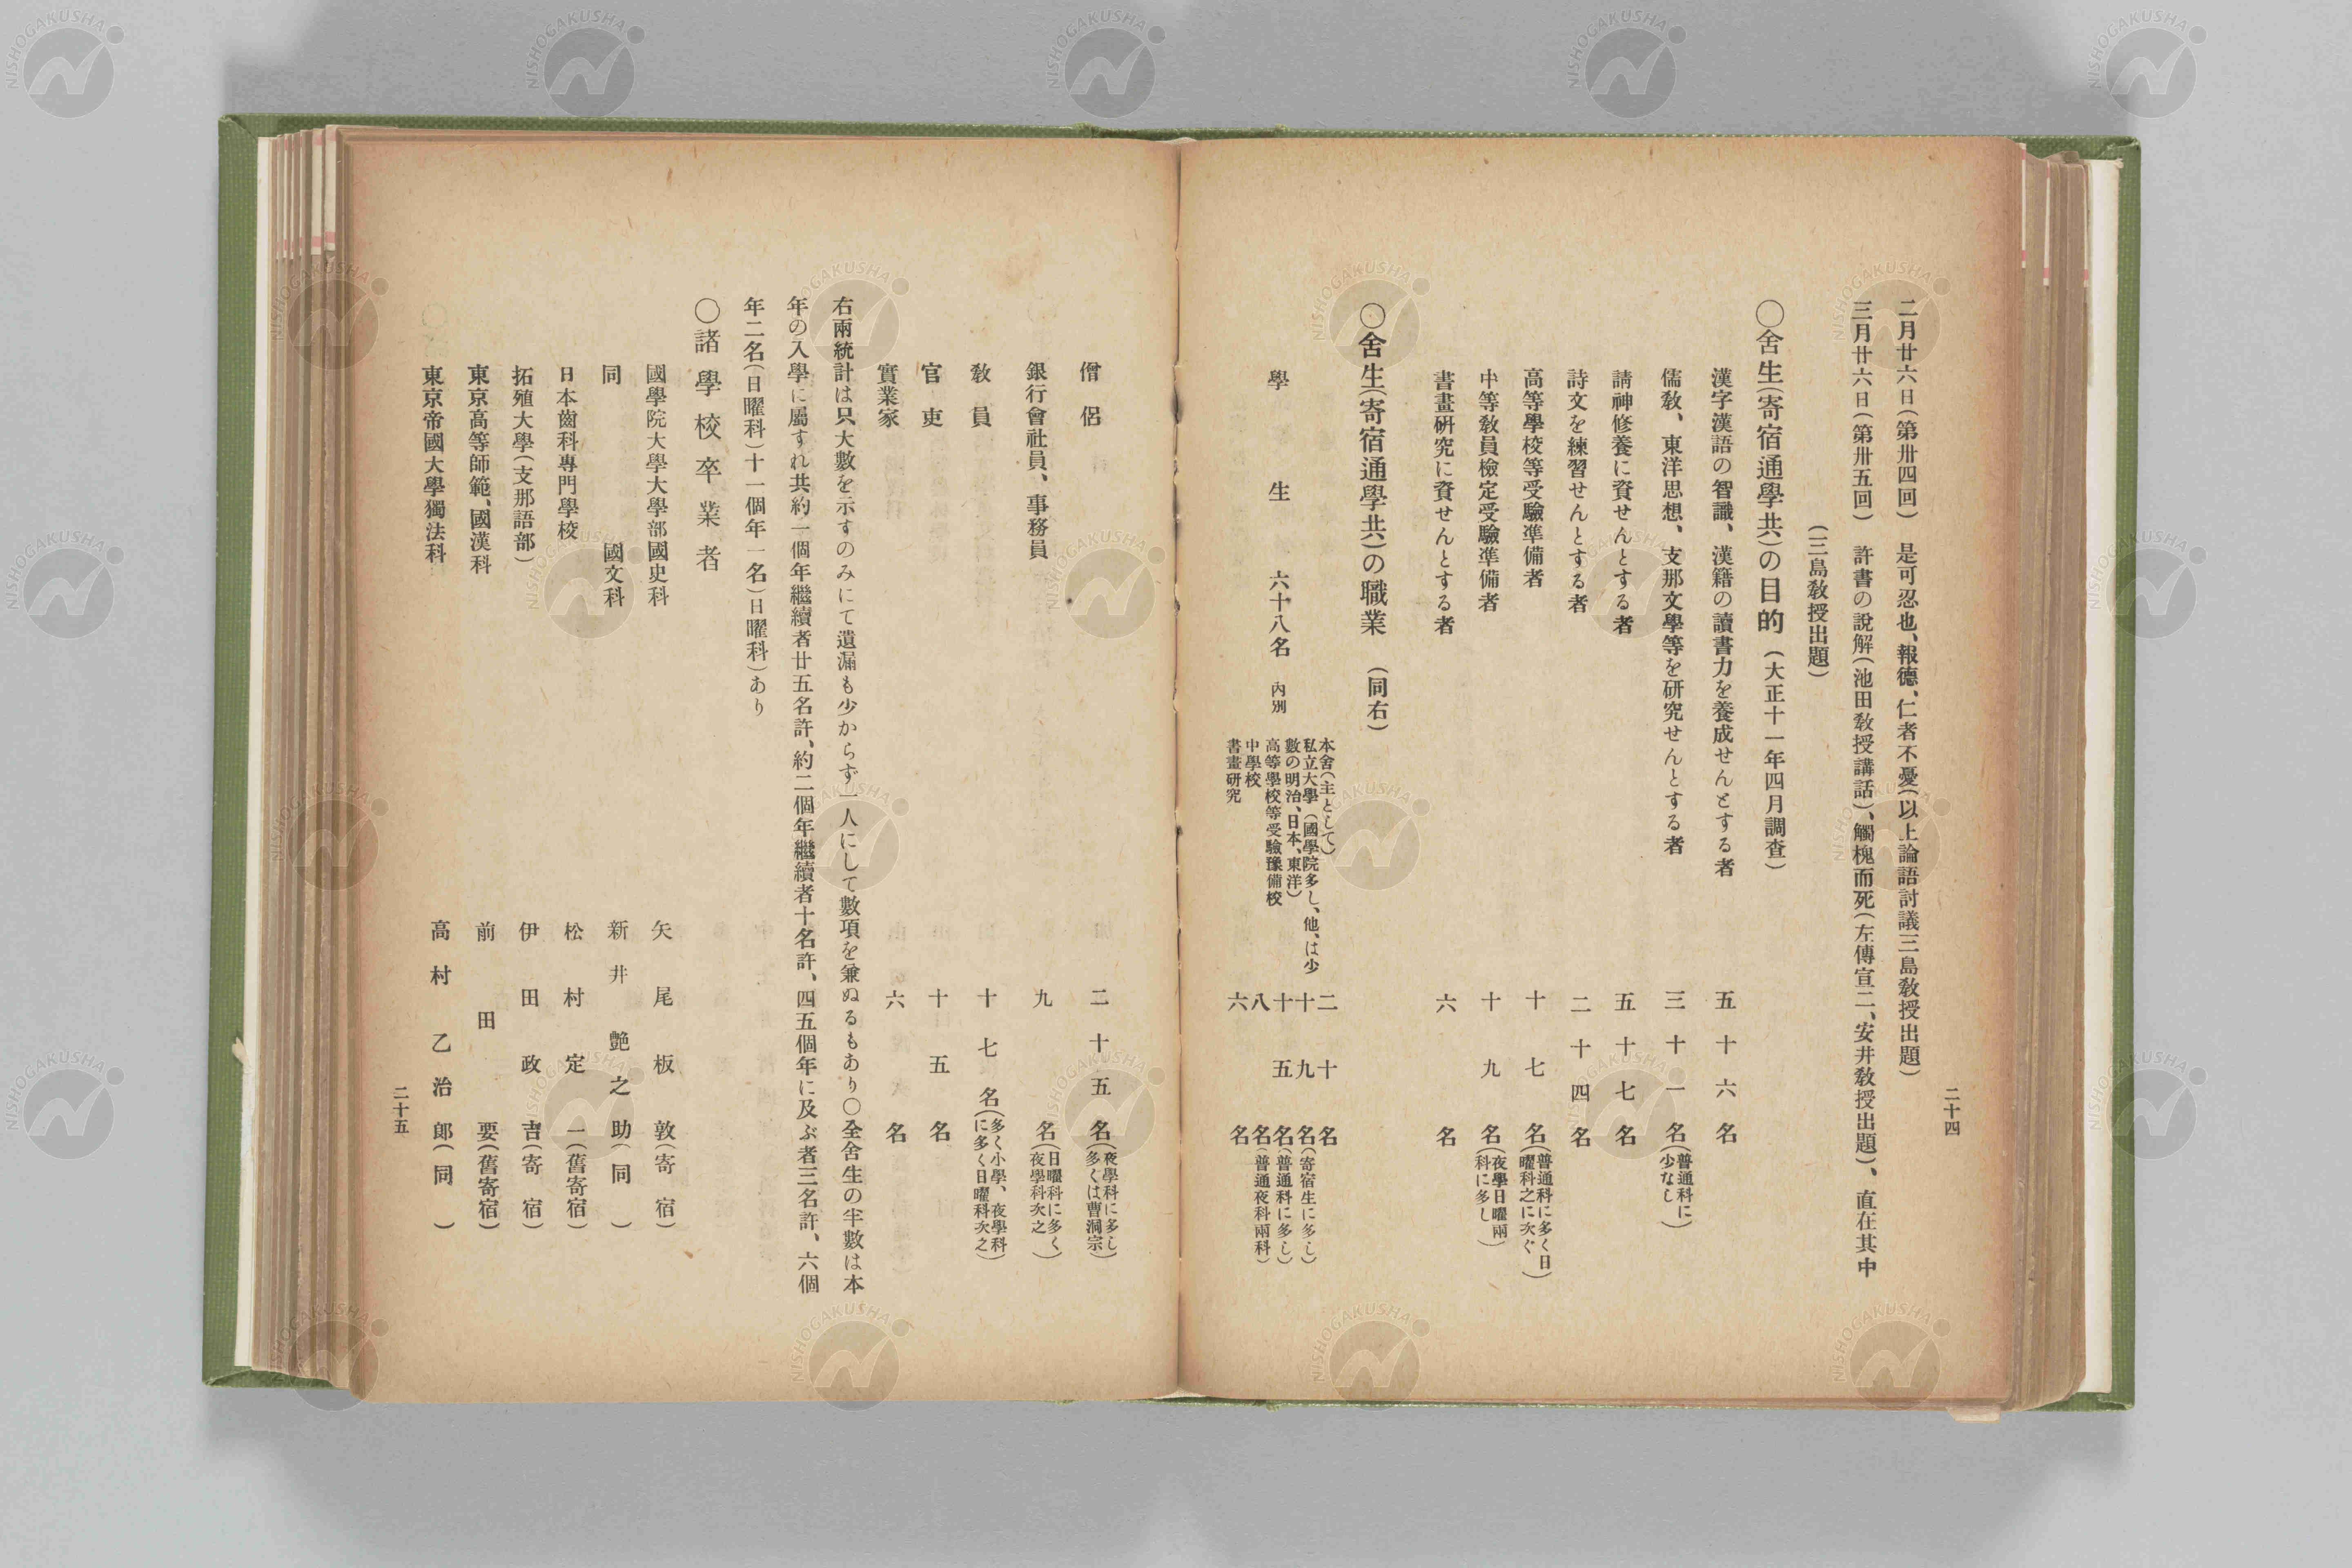 二十四
二月廿六日(第卅四回) 是可忍也、報德、仁者不憂(以上論語討議三島敎授出題)
三月廿六日(第卅五回) 許書の說解(池田敎授講話)、觸槐而死(左傳宣二、安井敎授出題)、直在其中
(三島敎授出題)
〇舍生(寄宿通學共)の目的(大正十一年四月調查)
漢字漢語の智識、漢籍の讀書力を養成せんとする者 五十六名
儒敎、東洋思想、支那文學等を硏究せんとする者 三十一名(普通科に少なし)
請神修養に資せんとする者 五十七名
詩文を練習せんとする者 二十四名
高等學校等受驗準備者 十七名(普通科に多く日曜科之に次ぐ)
中等敎員檢定受驗準備者 十九名(夜學日曜兩科に多し)
書畫硏究に資せんとする者 六名
〇舍生(寄宿通學共)の職業 (同右)
學生 六十八名 內別
本舍(主として) 二十名
私立大學(國學院多し、他、は少數の明治、日本、東洋) 十九名(寄宿生に多し)
高等學校等受驗豫備校 十五名(普通科に多し)
中學校 八名(普通夜科兩科)
書畫硏究 六名
僧侶 二十五名(夜學科に多し多くは曹洞宗)
銀行會社員、事務員 九名(日曜科に多く夜學科次之)
敎員 十七名(多く小學、夜學科に多く日曜科次之)
官吏 十五名
實業家 六名
右兩統計は只大數を示すのみにて遺漏も少からず一人にして數項を兼ぬるもあり〇全舍生の半數は本
年の入學に屬すれ共約一個年繼續者廿五名許、約二個年繼續者十名許、四五個年に及ぶ者三名許、六個
年二名(日曜科)十一個年一名)日曜科)あり
〇諸學校卒業者
國學院大學大學部國史科 矢尾板敦(寄宿)
同 國文科 新井艶之助(同)
日本齒科專門學校 松村定一(舊寄宿)
拓殖大學(支那語部) 伊田政吉(寄宿)
東京高等師範、國漢科 前田要(舊寄宿)
東京帝國大學獨法科 高村乙治郎(同)
二十五
NISHOGAKUSHA